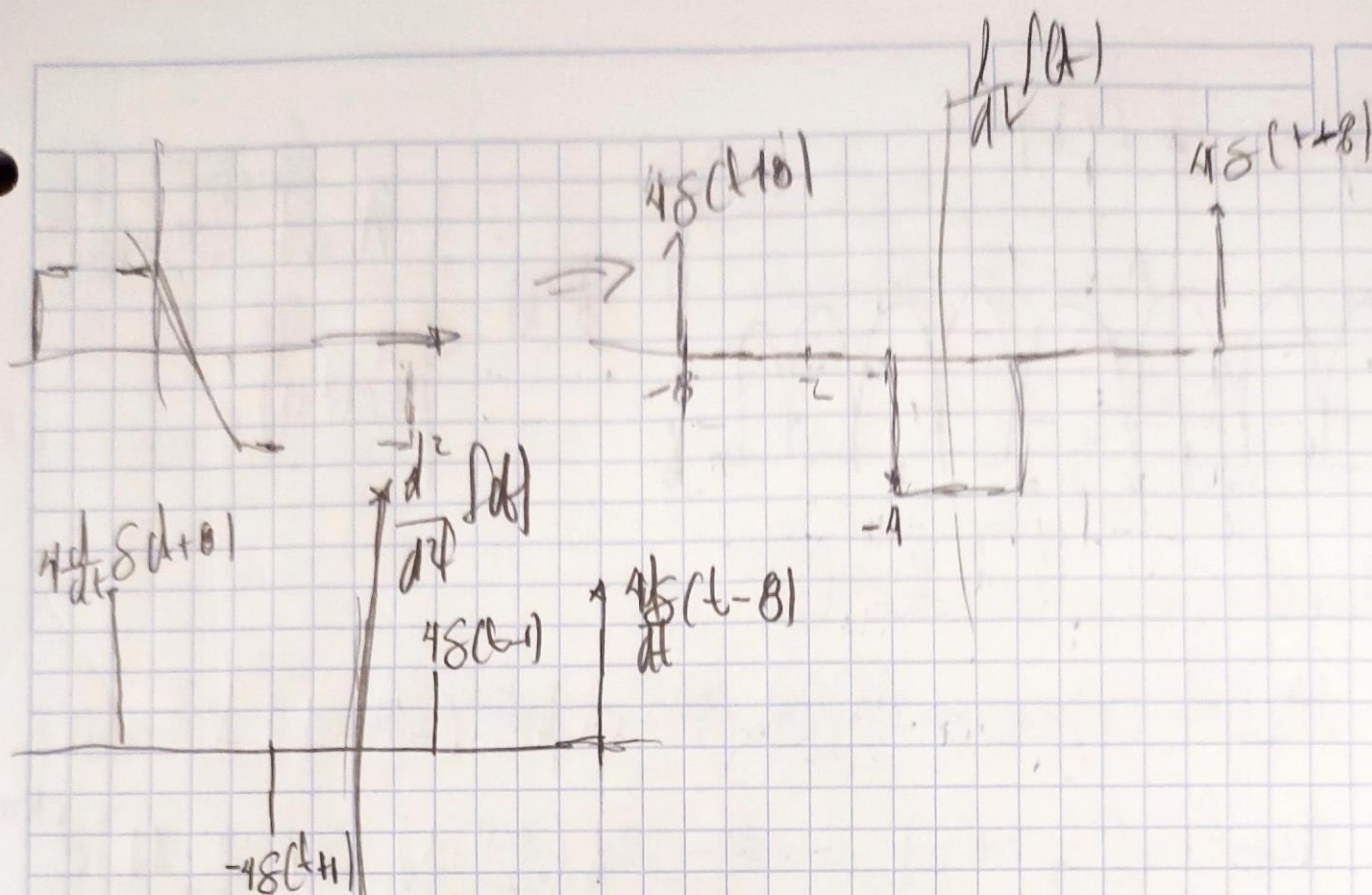 d/dt f(t)
4δ(t+8)
4δ(t+8)
-8
-1
-4
d²/d²t f(t)
4 d/dt δ(t+8)
4δ(t-1)
4 d/dt δ(t-8)
-4δ(t+1)